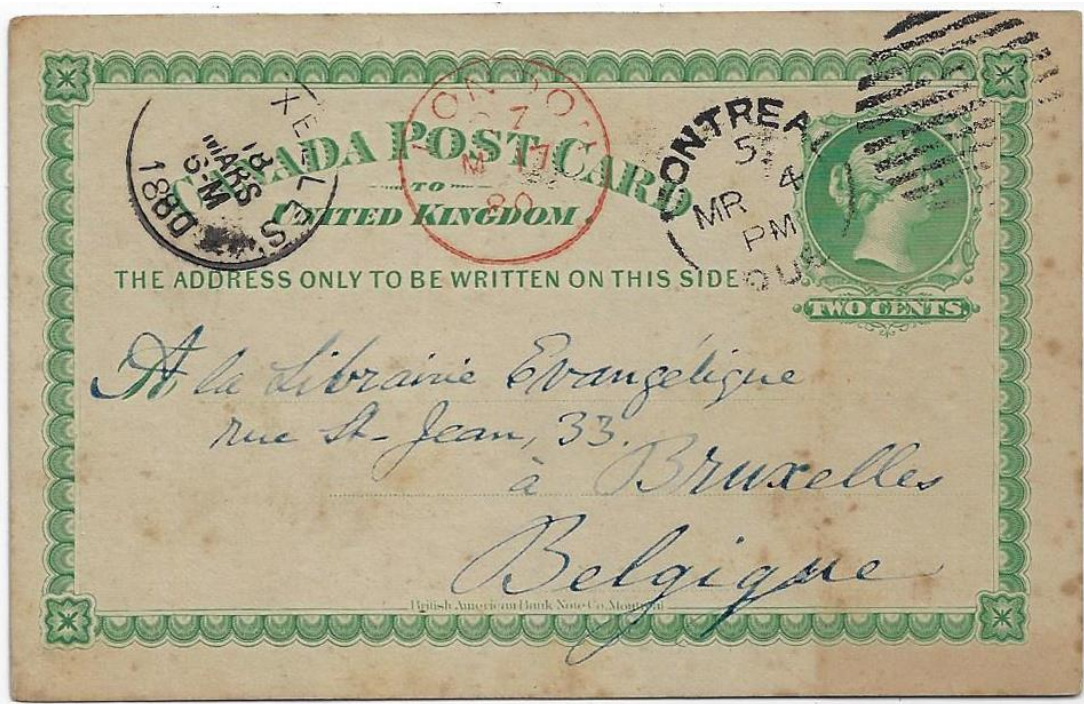 CANADA POST CARD
TO
UNITED KINGDOM.
THE ADDRESS ONLY TO BE WRITTEN ON THIS SIDE
TWO CENTS.
MONTREAL
MR 4
PM
QUE
LONDON
M 17
80
18 MARS
6-M
1880
A la Librairie Evangélique
rue St-Jean, 33.
à Bruxelles
Belgique
British American Bank Note Co. Montreal